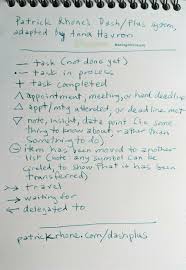 Patrick Rhone's Dash/Plus system,
adapted by Anna Havron
— task (not done yet)
← task in process
+ task completed
△ appointment, meeting, or hard deadline
appt/mtg attended, or deadline met
▽ note, insight, data point (ie some
thing to know about, rather than
something to do)
⊖ item has been moved to another
list (note: any symbol can
be circled to show that it has been
transferred)
travel
→ waiting for
← delegated to
patrickrhone.com/dashplus